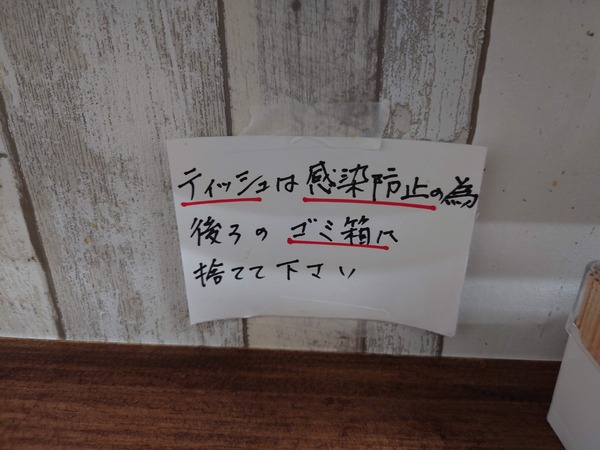 ティッシュは感染防止の為
後ろの ゴミ箱に
捨てて下さい